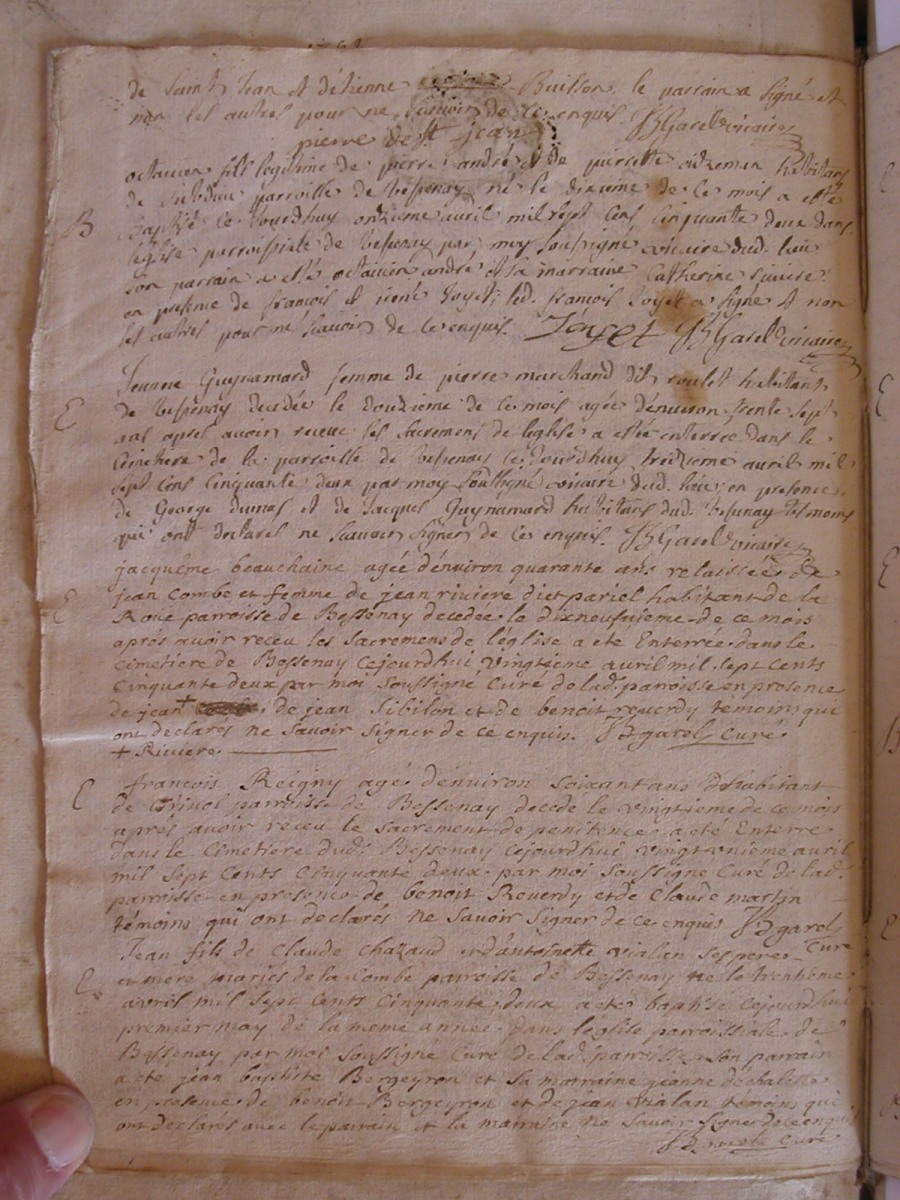 de Saint Jean et détienne Buisson le parrain a signé et
non les autres pour ne scavoir de ce enquis JB Garel vicaire
pierre de st jean
octavien fils legitime de pierre andré et de pierrette habitans
de parroisse de Bessenay né le dixieme de ce mois a esté
B Baptisé ce jourdhuy onzieme avril mil sept cens cinquante deux dans
leglise parroissiale de Bessenay par moy soussigné vicaire dud. lieu
son parrain a esté octavien andré et la marraine catherine riviere
en presence de francois et irené Joyet led. francois Joyet a signé et non
les autres pour ne scavoir de ce enquis. Joyet JB Garel vicaire
Jeanne Guynamard femme de pierre marchand dit roulet habitant
E de Bessenay decedée le douzieme de ce mois agée dénviron trente sept
ans apres avoir receue les sacremens de leglise a estée enterrée dans le
cimetiere de la parroisse de Bessenay ce jourdhuy treizieme avril mil
sept cens cinquante deux par moy soussigné vicaire dud. lieu en presence
de George dumas et de Jacques Guynamard habitans dud. Bessenay temoins
qui ont declarés ne scavoir signer de ce enquis. JB Garel vicaire
jacqueme beauchaine agée dénviron quarante ans relaissée de
E jean combe et femme de jean riviere dict pariel habitant de la
Roue parroisse de Bessenay decedée le dixneufuieme de ce mois
après avoir receu les sacremens de léglise a eté Enterrée dans le
cimetiere de Bessenay cejourdhui vingtieme avril mil sept cents
cinquante deux par moi soussigné Curé de lad. parroisse en presence
de jean + de jean Sibilon et de benoit reverdy temoins qui
ont declarés ne savoir signer de ce enquis. JB garel Curé
+ Riviere
francois Reigny agé dénviron soixant ans habitant
E de parroisse de Bessenay decede le vingtieme de ce mois
après avoir receu le sacrement de penitence a eté Enterré
dans le cimetiere dud. Bessenay cejourdhui vingtunieme avril
mil sept cents cinquante deux par moi soussigné Curé de lad.
parroisse en presence de benoit Reverdy et de Claude martin
témoins qui ont declarés ne savoir signer de ce enquis JB garel
Curé
Jean fils de Claude chazaud et d'antoinette vialen ses pere
et mere mariés de la Combe parroisse de Bessenay né le trentieme
avril mil sept cents cinquante deux a eté baptisé cejourdhui
premier may de la meme année dans léglise parroissiale de
Bessenay par moi soussigné Curé de lad. parroisse son parrain
a eté jean baptiste Bergeyron et sa marraine
en presence de benoit Bergeyron et de jean vialan temoins qui
ont declarés avec le parrain et la marraine ne savoir signer de ce enquis
JB garel Curé